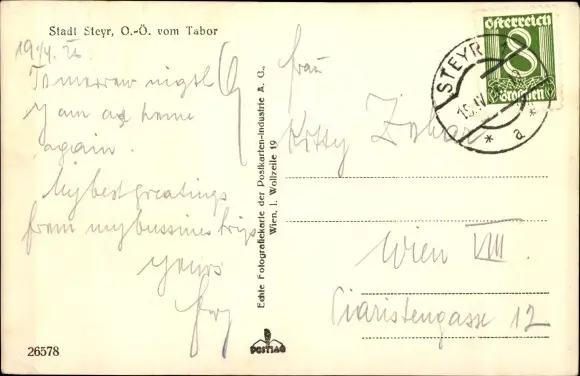 Stadt Steyr, O.-Ö. vom Tabor
19/4.
Tomorrow night
I am at home
again.
My best greetings
from my bussines trip
yours
26578
Echte Fotografiekarte der Postkarten-Industrie A. G.,
Wien, I. Wollzeile 19
POSTIAG
Österreich
8
Groschen
STEYR
19.IV
* a *
Frau
Kitty
Wien VIII.
Piaristengasse 12